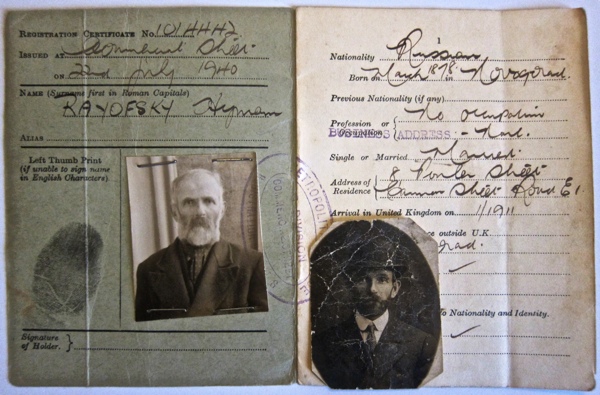 REGISTRATION CERTIFICATE No. 1014442
ISSUED AT Street
ON 22nd July 1940
NAME (Surname first in Roman Capitals)
KAYOFSKY Hyman
ALIAS
Left Thumb Print
(if unable to sign name
in English Characters).
Signature
of Holder.
METROPOL
DIVISION
1
Nationality Russian
Born on March 1878 in
Previous Nationality (if any)
Profession or No Occupation
Occupation
BUSINESS ADDRESS
Single or Married Married
Address of 8 Ponler Street
Residence Cannon Street Road E1
Arrival in United Kingdom on 1/1911
ce outside U.K.
grad.
to Nationality and Identity.